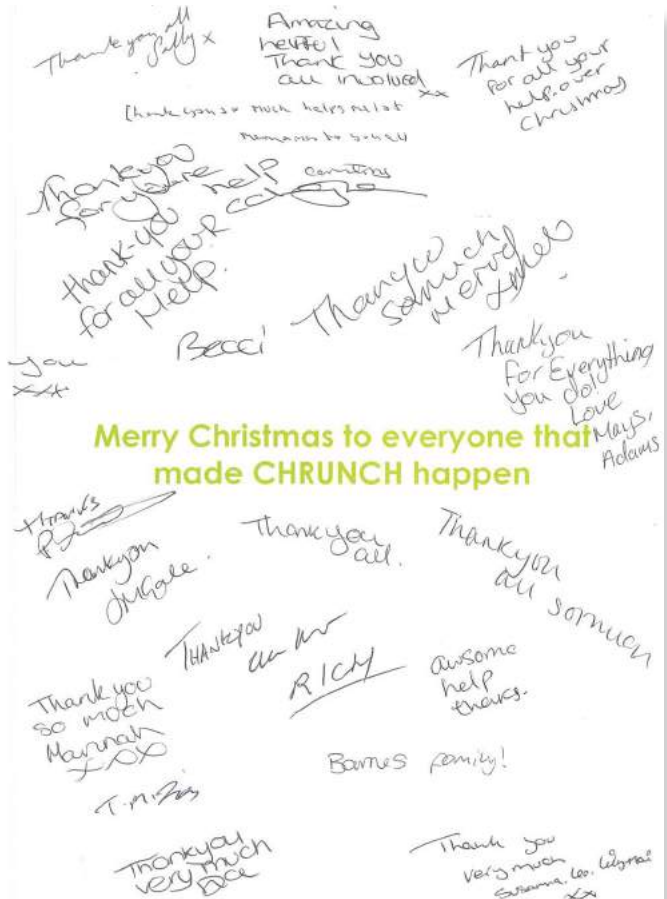 Thankyou all
Sally x
Amazing
helpfel
Thank you
all involved
xx
Thank you
for all your
help over
Christmas
Thank you so much helps me lot
Thankyou
for youre help
thank-you
for all your
Help.
Becci
Thankyou
somuch
you
xxx
Thankyou
For Everything
you do!
Love
Mays,
Adams
Merry Christmas to everyone that
made CHRUNCH happen
thanks
Thankyou
Thankyou
all.
Thankyou
all somuch
THANKYOU
RICH
awsome
help
thanks.
Thank you
so much
Hannah
xxx
Barnes family!
Thankyou
very much
Thank you
very much
Susanna, Leo,
xx